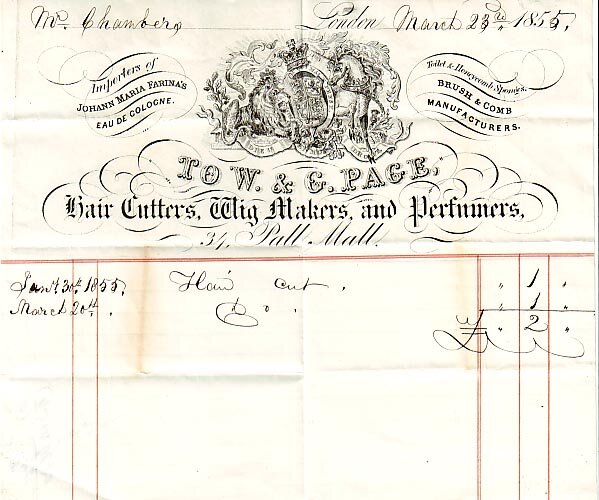 Mr. Chambers London March 23rd, 1855.
Importers of
JOHANN MARIA FARINA'S
EAU DE COLOGNE.
Toilet & Honeycomb Sponges.
BRUSH & COMB
MANUFACTURERS.
TO W. & G. PAGE,
Hair Cutters, Wig Makers, and Perfumers,
34, Pall Mall.
Jany. 30th. 1855. Hair cut. " 1 "
March 20th. Do. " 1 "
" 2 "